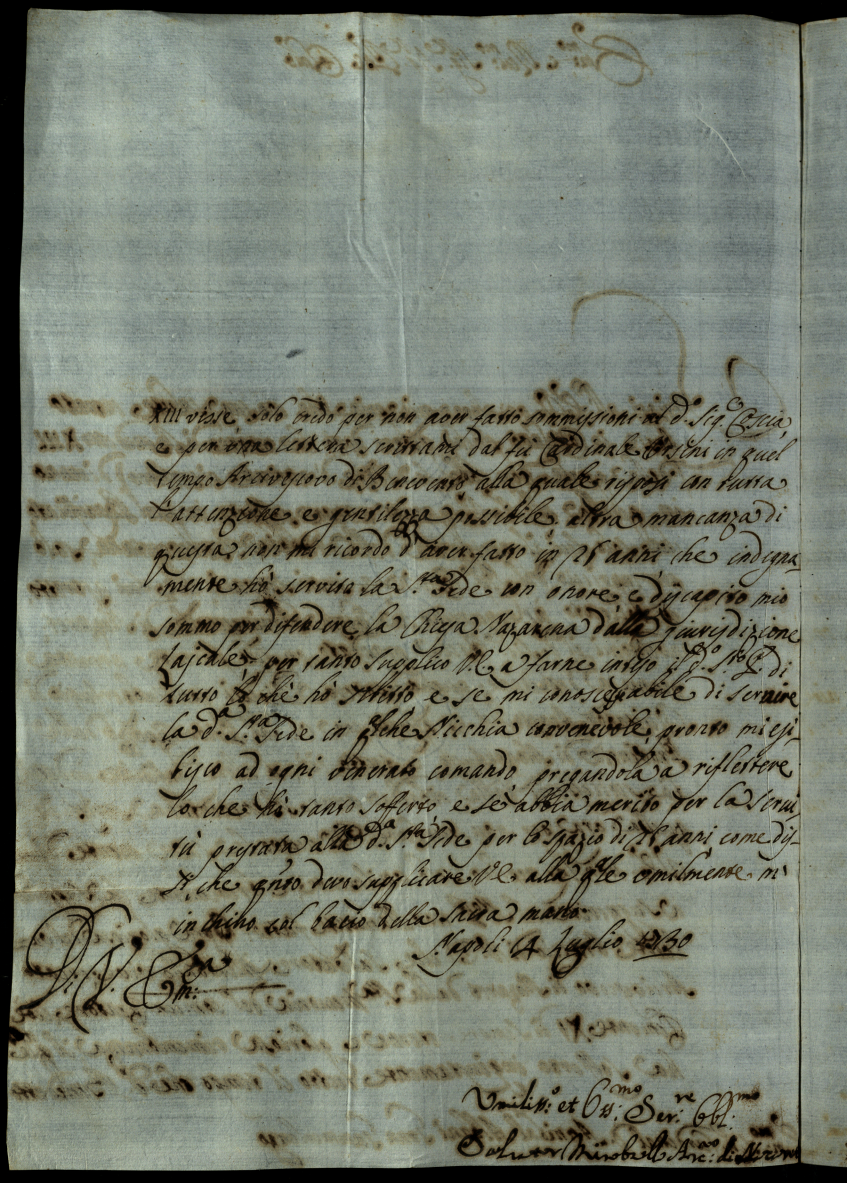 XIII visse, solo credo per non aver fatto sommissioni al d.º Sig.º Coscia,
e per una lettera scrittami dal fù Cardinale Orsini in quel
tempo Arcivescovo di Benevento alla quale risposi con tutta
l'attenzione e gentilezza possibile, altra mancanza di
questa non mi ricordo d'aver fatto in 26 anni che indegna-
mente hò servita la S.ta Sede con onore e discapito mio
sommo per difendere la Chiesa Nazarena dalla giurisdizione
laicale; per tanto supplico V.E. a farne inteso il d.º S.to P. di
tutto ciò che hò scritto e se mi conosce abile di servire
la d.a S.ta Sede in qlche Nicchia convenevole, pronto mi esi-
bisco ad ogni venerato comando pregandola a riflettere
lo che hò tanto sofferto e se abbia merito per la servi-
tù prestata alla d.a S.ta Sede per lo spazio di 26 anni come dis-
si, che qnto devo supplicare V.E. alla qle umilmente m'
inchino col bacio della sacra mano.
Napoli 4 Luglio 1730
Di V. Em.za
Umiliss.º et Oss.mo Ser.re Obl.mo
Salvator Miroballi Arc.vo di